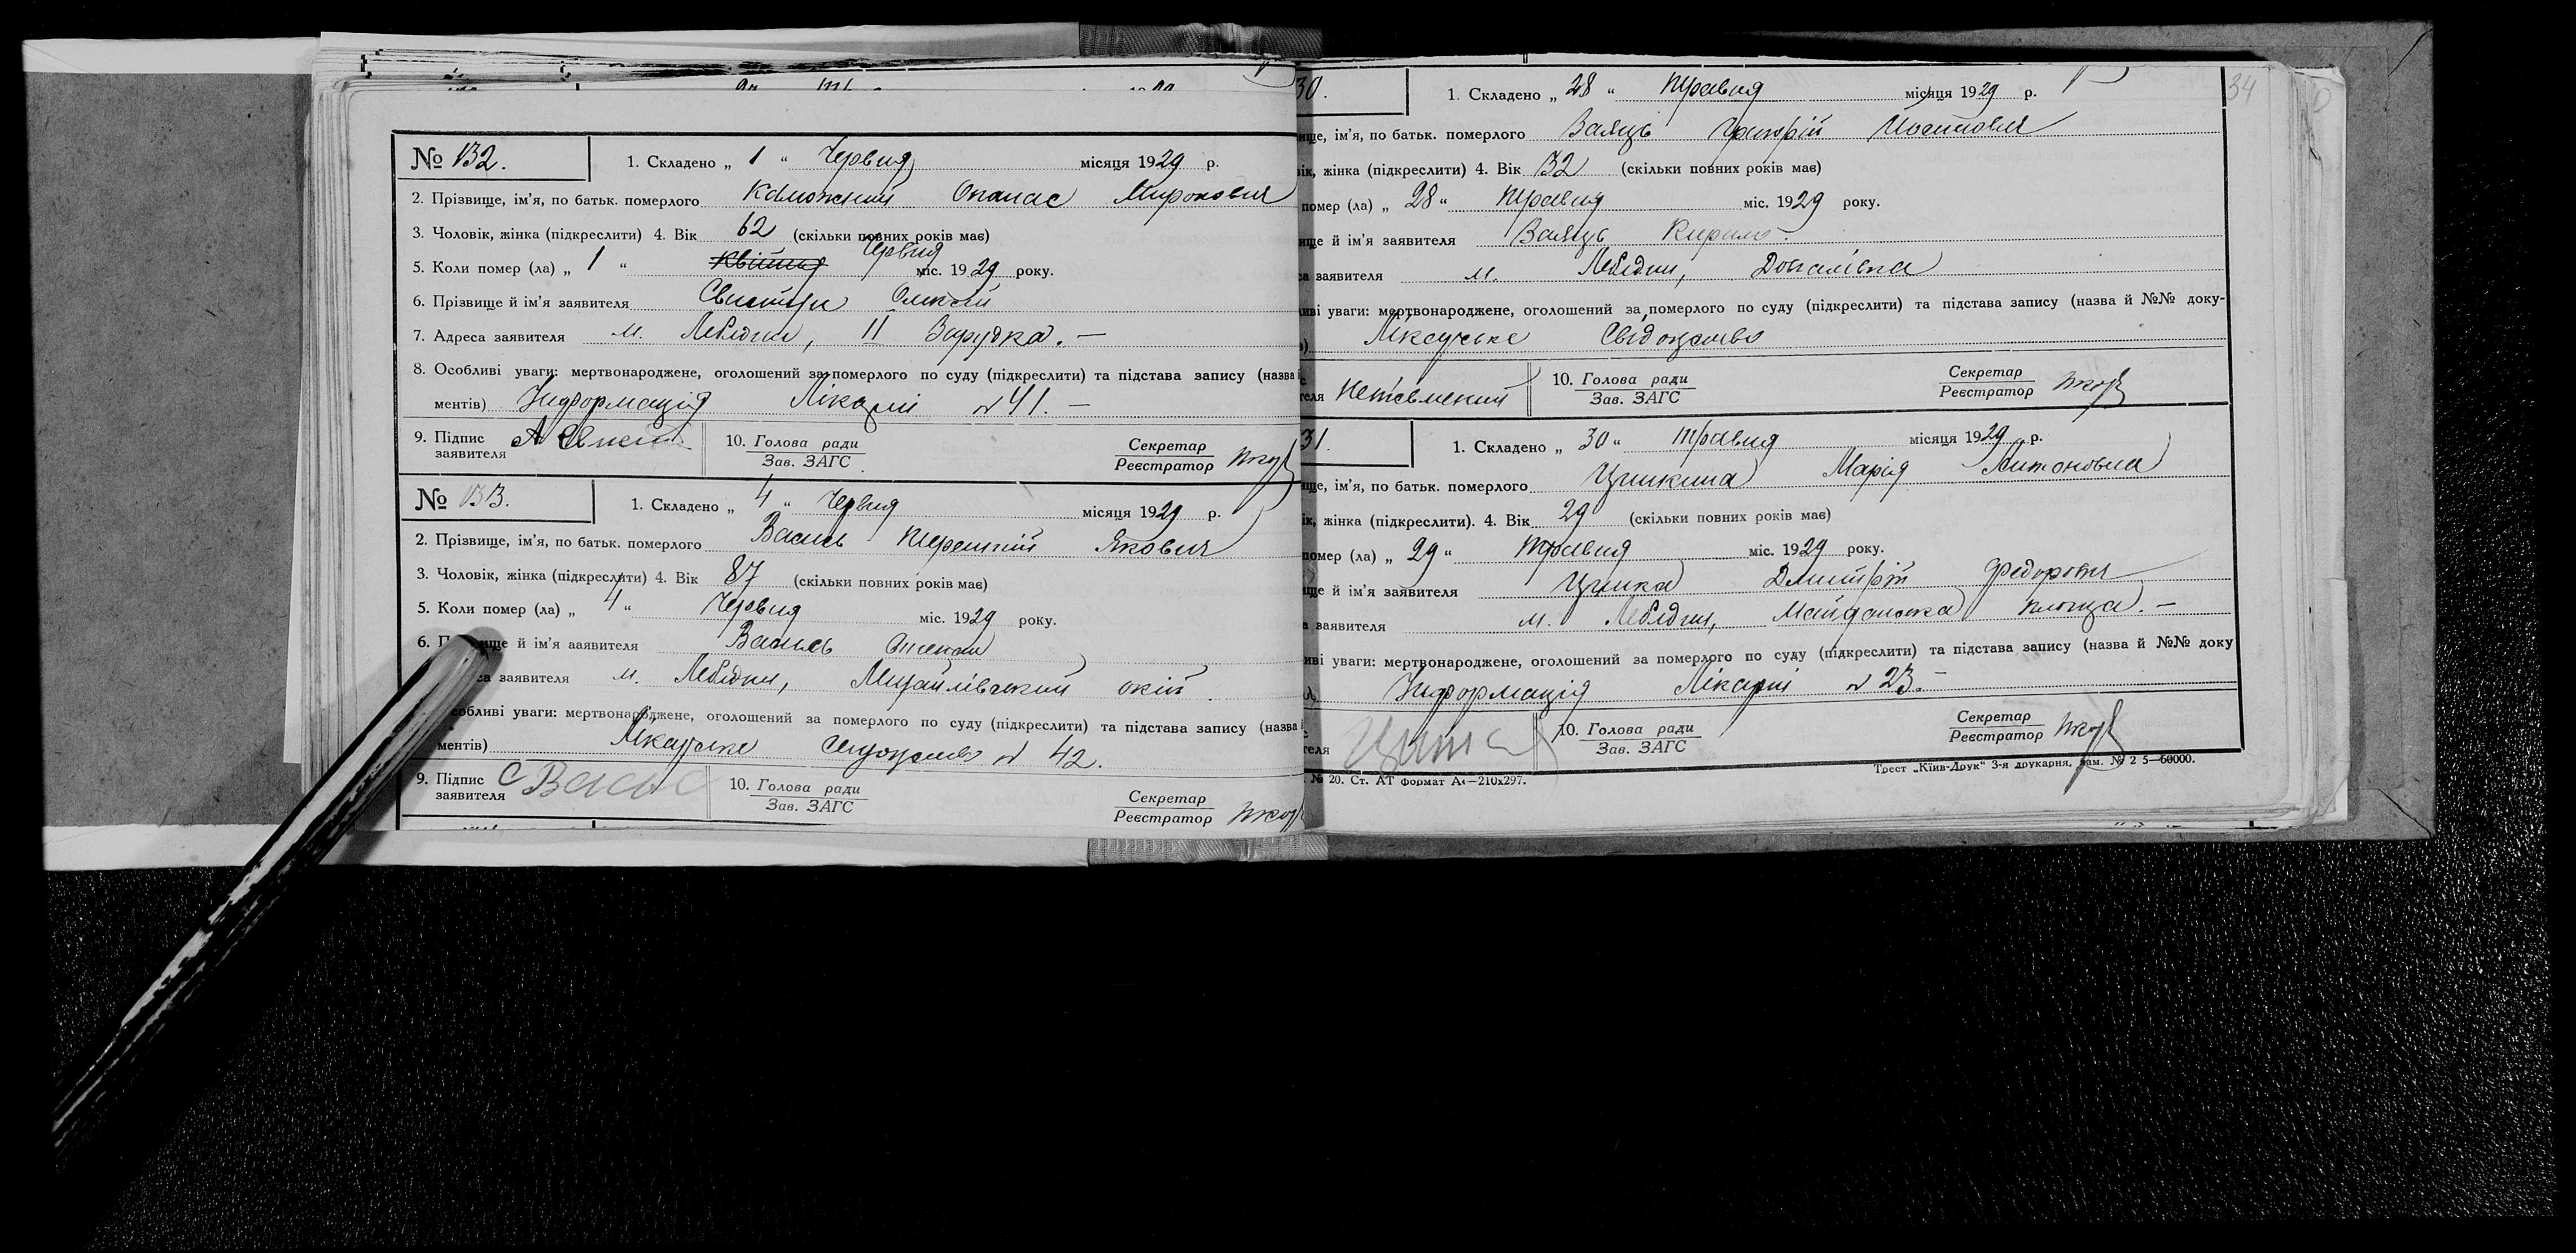 № 132.
1. Складено „ 1 “ Червня місяця 1929 р.
2. Прізвище, ім'я, по батьк. померлого Каможний Опанас Миронович
3. Чоловік, жінка (підкреслити) 4. Вік 62 (скільки повних років має)
5. Коли помер (ла) „ 1 “ Квітня Червня міс. 1929 року.
6. Прізвище й ім'я заявителя Олексій
7. Адреса заявителя м. Лебедин, II Зарудка. —
8. Особливі уваги: мертвонароджене, оголошений за померлого по суду (підкреслити) та підстава запису (назва
ментів) Информація Лікарні № 41. —
9. Підпис заявителя
10. Голова ради
Зав. ЗАГС
Секретар
Реєстратор
№ 133.
1. Складено „ 4 “ Червня місяця 1929 р.
2. Прізвище, ім'я, по батьк. померлого Василь Терентій Якович
3. Чоловік, жінка (підкреслити) 4. Вік 87 (скільки повних років має)
5. Коли помер (ла) „ 4 “ Червня міс. 1929 року.
6. й ім'я заявителя Василь
заявителя м. Лебедин, Михайлівський
особливі уваги: мертвонароджене, оголошений за померлого по суду (підкреслити) та підстава запису (назва
ментів) Лікарське № 42.
9. Підпис заявителя
10. Голова ради
Зав. ЗАГС
Секретар
Реєстратор
34
30.
1. Складено „ 28 “ Травня місяця 1929 р.
ім'я, по батьк. померлого Заяць Григорій
жінка (підкреслити) 4. Вік 32 (скільки повних років має)
помер (ла) „ 28 “ Травня міс. 1929 року.
й ім'я заявителя Заяць Кирило.
заявителя м. Лебедин, Доценківка
уваги: мертвонароджене, оголошений за померлого по суду (підкреслити) та підстава запису (назва й №№ доку-
Лікарське Свідоцтво
10. Голова ради
Зав. ЗАГС
Секретар
Реєстратор
31.
1. Складено „ 30 “ Травня місяця 1929 р.
ім'я, по батьк. померлого Марія Антоновна
жінка (підкреслити). 4. Вік 29 (скільки повних років має)
помер (ла) „ 29 “ Травня міс. 1929 року.
й ім'я заявителя Дмитрій Федорович
заявителя м. Лебедин, Майданська площа. —
уваги: мертвонароджене, оголошений за померлого по суду (підкреслити) та підстава запису (назва й №№ доку
Информація Лікарні № 23. —
10. Голова ради
Зав. ЗАГС
Секретар
Реєстратор
№ 20. Ст. АТ формат А4—210х297.
Трест „Київ-Друк“ 3-я друкарня, зам. № 2 5—60000.